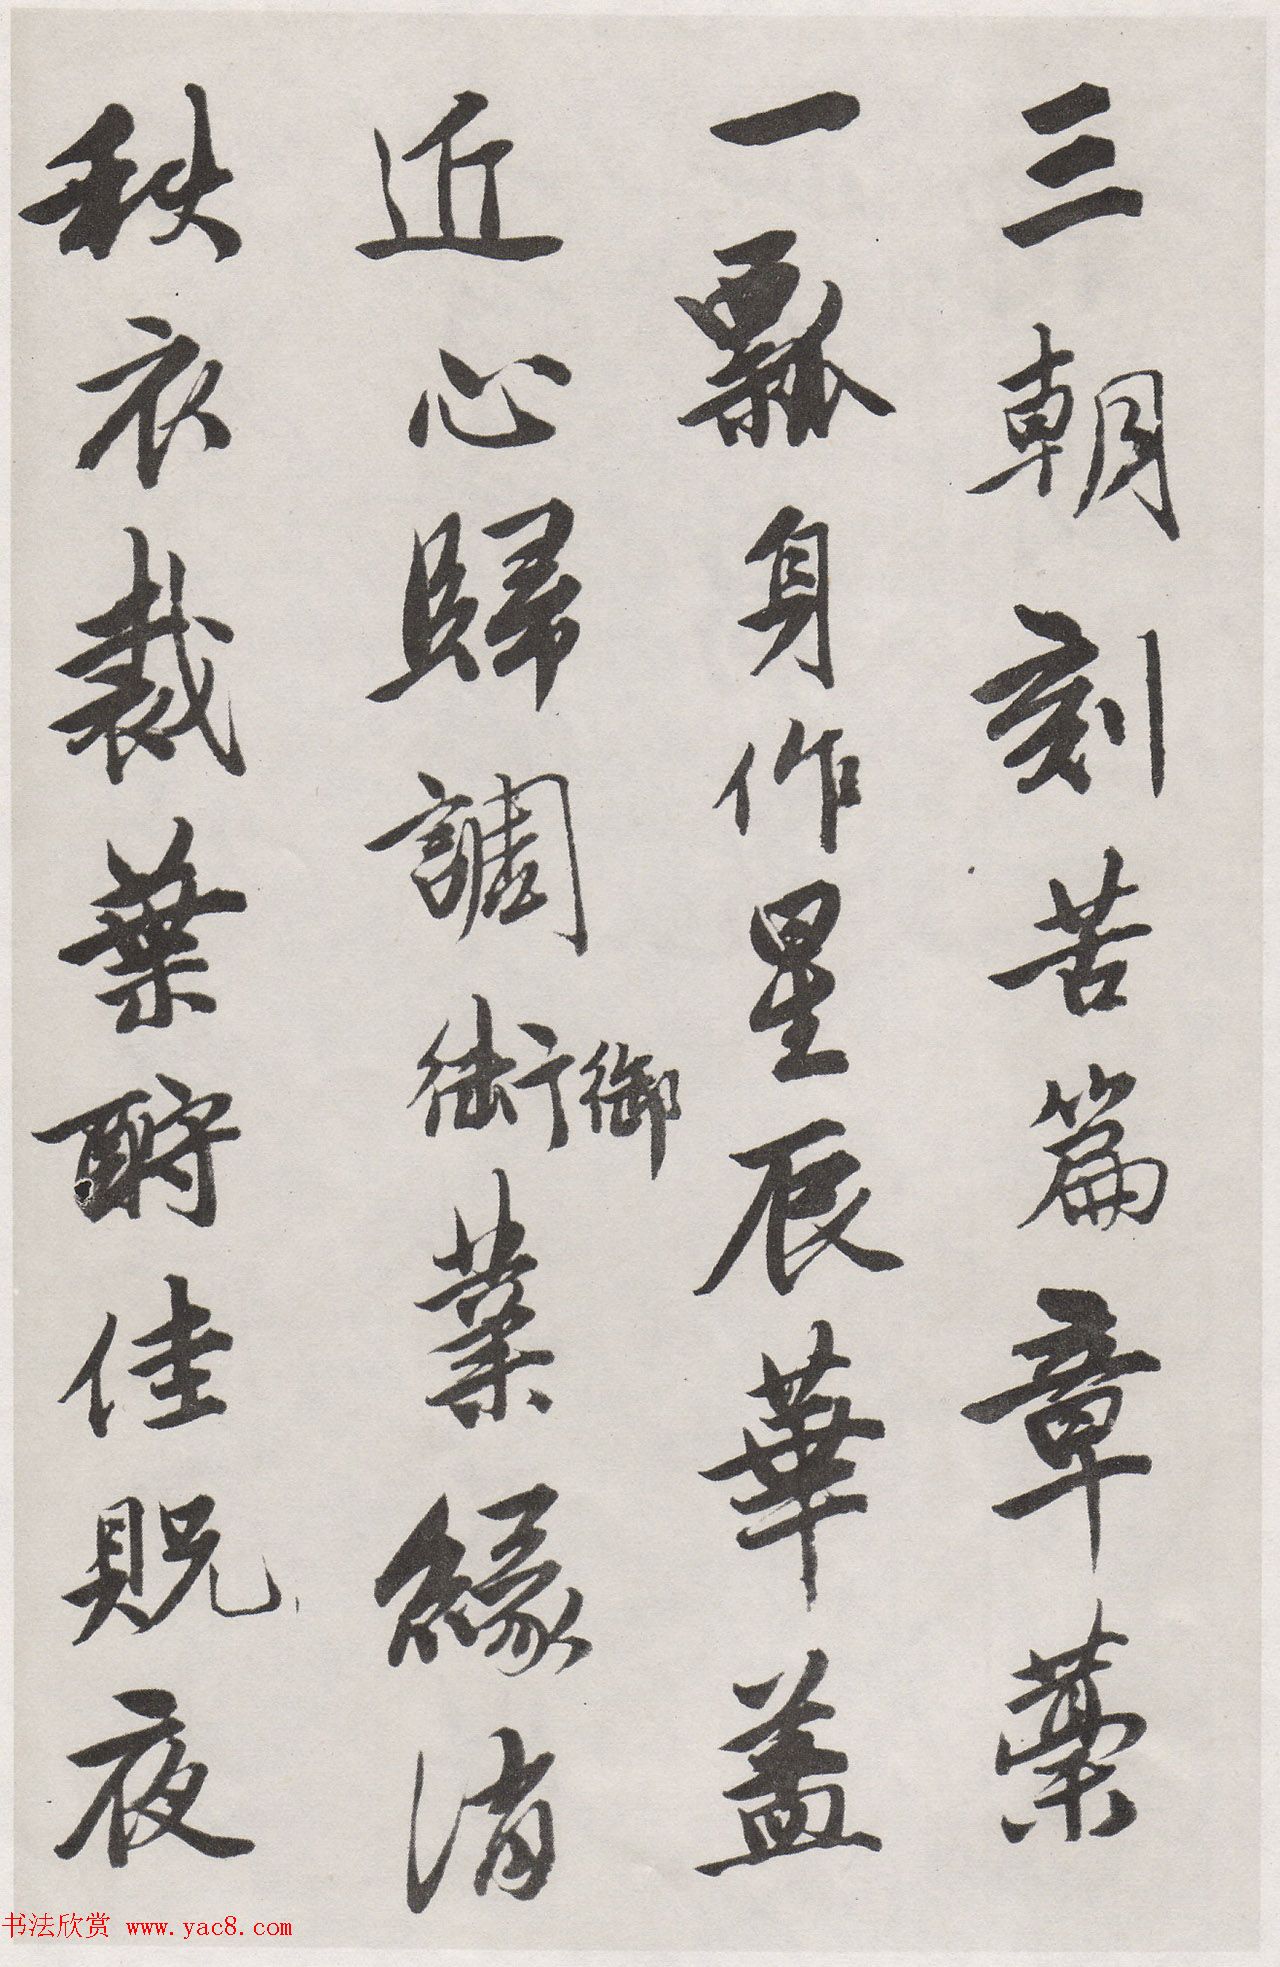 三朝刻苦篇章藁
一瓢身作星辰華蓋
近心歸調衛御業緣消
秩衣裁葉酹佳貺夜
书法欣赏 www.yac8.com